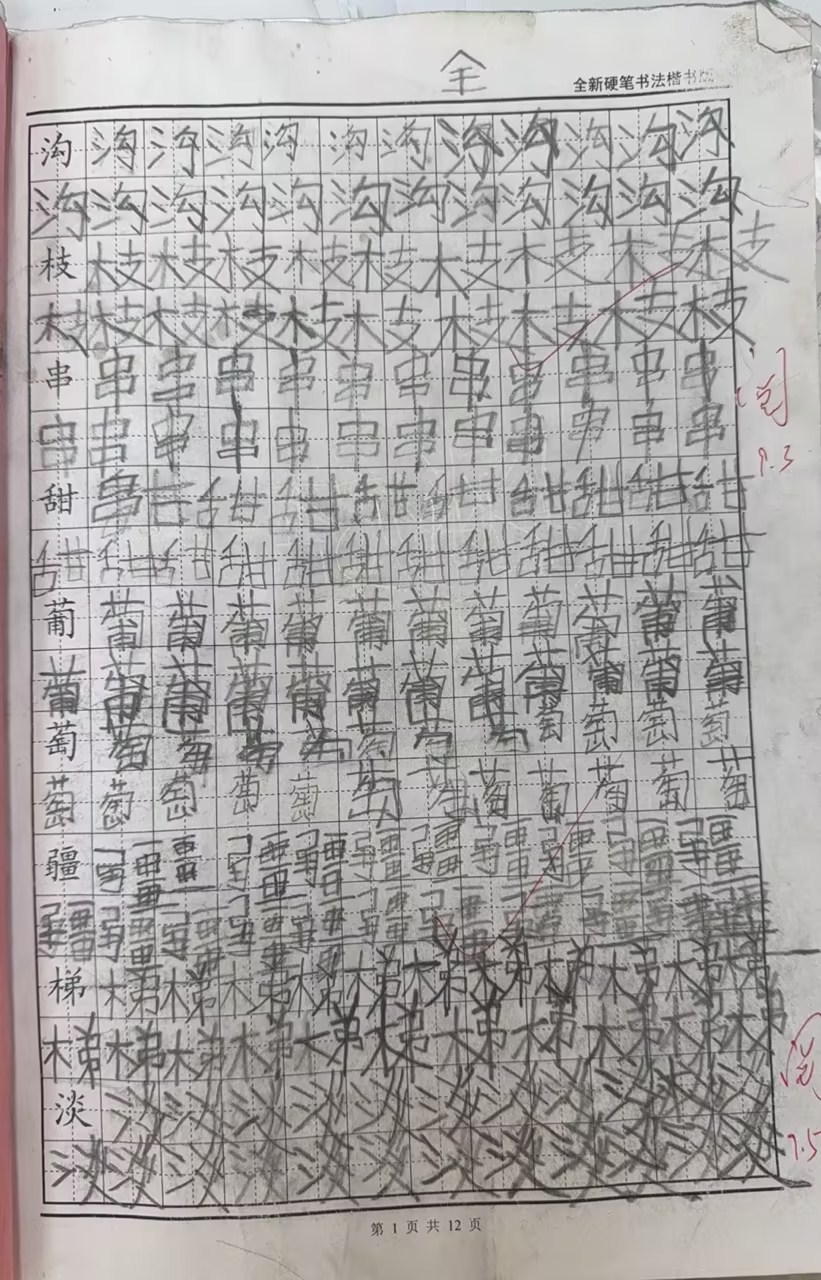 全
全新硬笔书法楷书
沟 沟 沟 沟 沟 沟 沟 沟 沟 沟 沟 沟
沟 沟 沟 沟 沟 沟 沟 沟 沟 沟 沟 沟
枝 枝 枝 枝 枝 枝 枝 枝 枝 枝
枝 枝 枝 枝 枝 枝 枝 枝 枝 枝
串 串 串 串 串 串 串 串 串 串 串 串
串 串 串 串 串 串 串 串 串 串 串 串
甜 串 甜 甜 甜 甜 甜 甜 甜 甜 甜
甜 甜 甜 甜 甜 甜 甜 甜 甜 甜 甜 甜
葡 葡 葡 葡 葡 葡 葡 葡 葡 葡 葡 葡
葡 葡 葡 葡 葡 葡 葡 葡 葡 葡 葡 葡
萄 萄 萄 萄 萄 萄 萄 萄 萄 萄 萄 萄
萄 萄 萄 萄 萄 萄 萄 萄 萄 萄 萄 萄
疆 疆 疆 疆 疆 疆 疆 疆 疆 疆
疆 疆 疆 疆 疆 疆 疆 疆 疆 疆
梯 梯 梯 梯 梯 梯 梯 梯 梯 梯 梯
梯 梯 梯 梯 梯 梯 梯 梯 梯 梯 梯
淡 淡 淡 淡 淡 淡 淡 淡 淡 淡 淡
淡 淡 淡 淡 淡 淡 淡 淡 淡 淡 淡
阅
9.3
阅
9.5
第 1 页 共 12 页